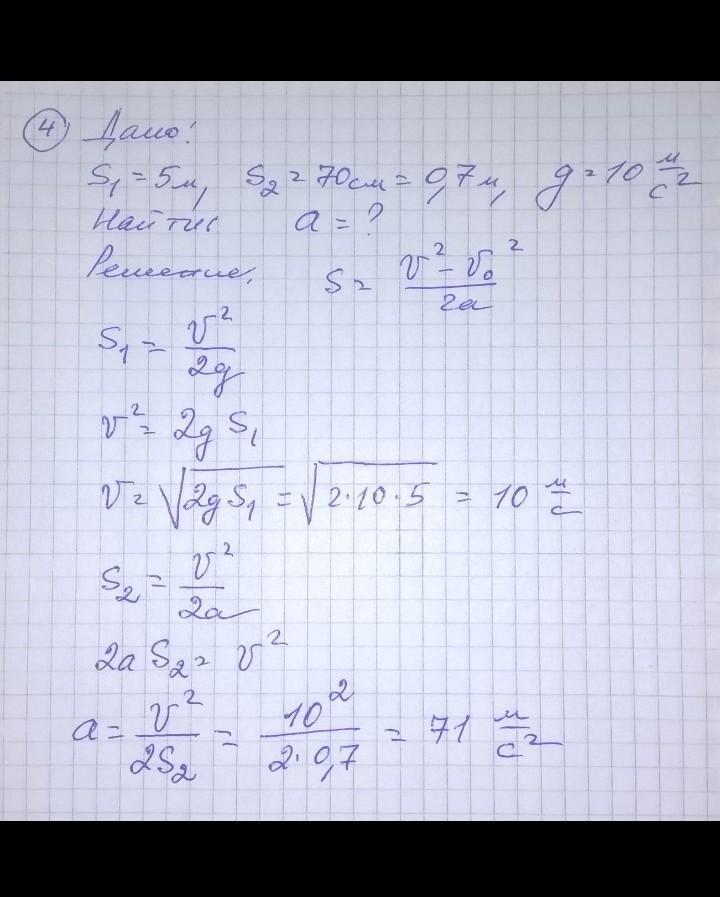 ④ Дано:
S₁ = 5м, S₂ = 70см = 0,7м, g = 10 м/с²
Найти a = ?
Решение. S = (v² - v₀²)/2a
S₁ = v²/2g
v² = 2g S₁
v = √(2g S₁) = √(2·10·5) = 10 м/с
S₂ = v²/2a
2a S₂ = v²
a = v²/2S₂ = 10²/(2·0,7) = 71 м/с²